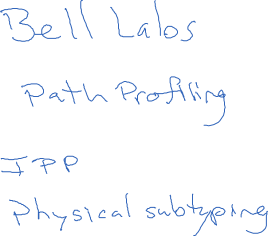 Bell Labs
Path Profiling
IPP
Physical subtyping